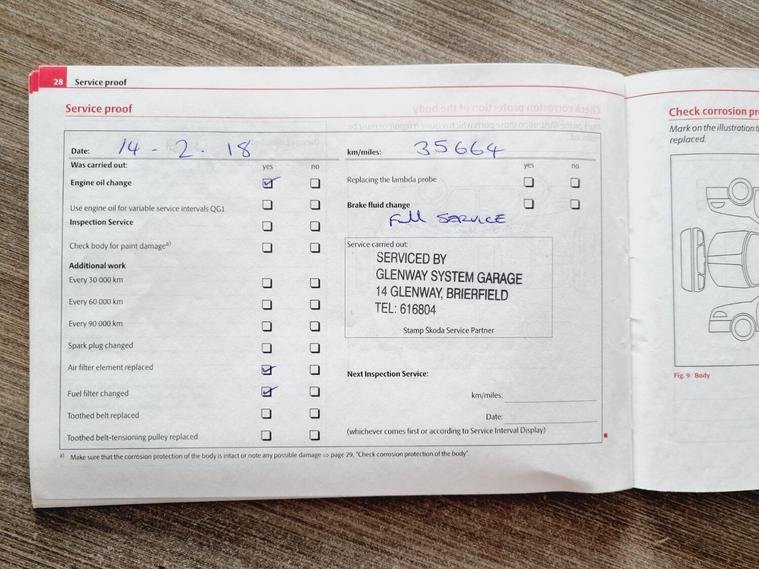 28 Service proof
Service proof
Date: 14 - 2 . 18
km/miles: 35664
Was carried out: yes no
yes no
Engine oil change
Replacing the lambda probe
Use engine oil for variable service intervals QG1
Brake fluid change
Full SERVICE
Inspection Service
Check body for paint damage a)
Service carried out:
SERVICED BY
GLENWAY SYSTEM GARAGE
14 GLENWAY, BRIERFIELD
TEL: 616804
Stamp Škoda Service Partner
Additional work
Every 30 000 km
Every 60 000 km
Every 90 000 km
Spark plug changed
Air filter element replaced
Fuel filter changed
Toothed belt replaced
Toothed belt-tensioning pulley replaced
Next Inspection Service:
km/miles:
Date:
(whichever comes first or according to Service Interval Display)
a) Make sure that the corrosion protection of the body is intact or note any possible damage ⇒ page 29, "Check corrosion protection of the body".
Check corrosion pr
Mark on the illustration t
replaced.
Fig. 9 Body